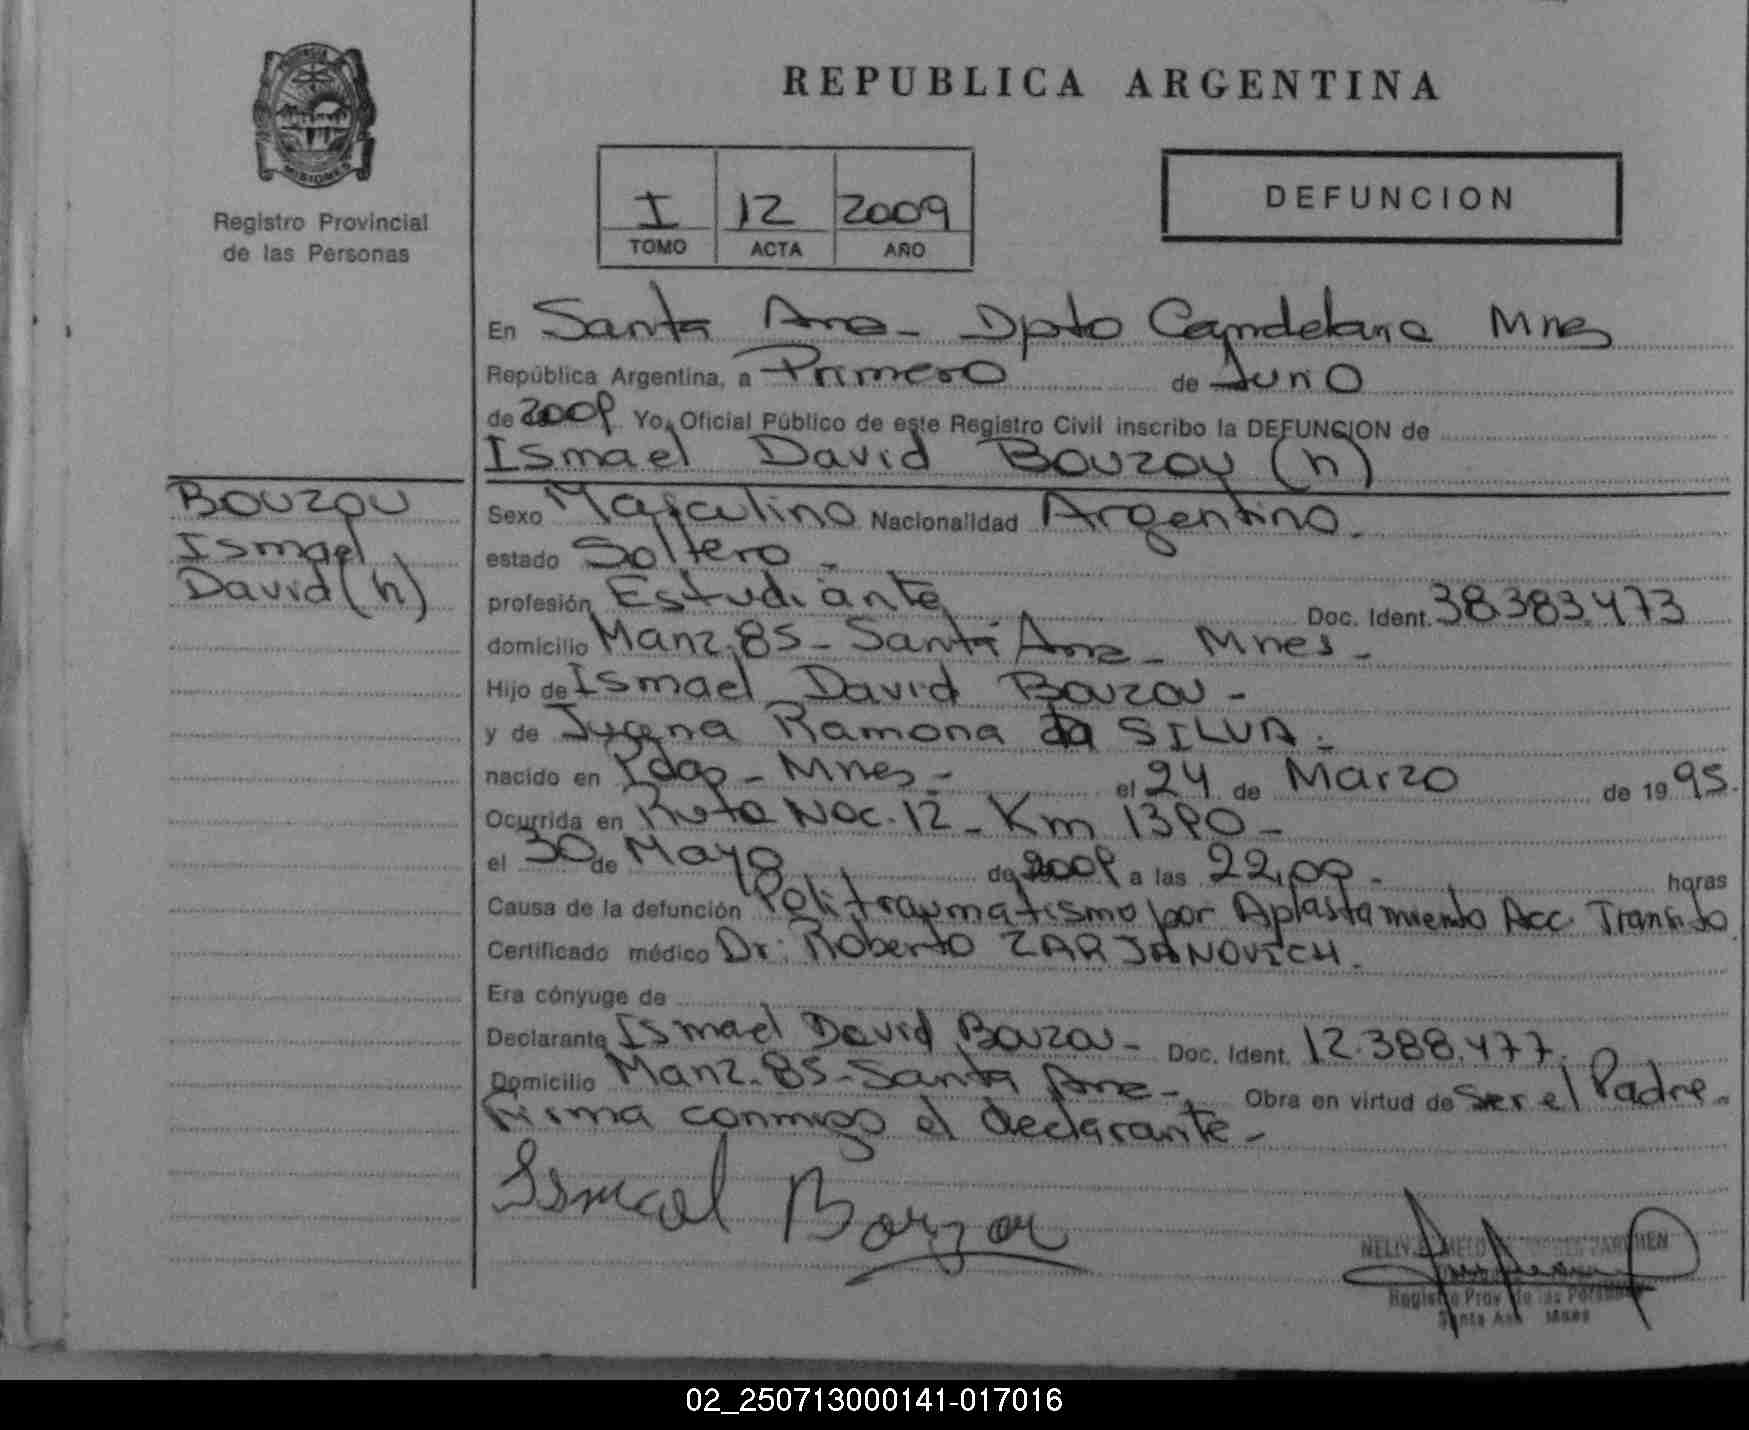 PROVINCIA
MISIONES
Registro Provincial
de las Personas
REPUBLICA ARGENTINA
I 12 2009
TOMO ACTA AÑO
DEFUNCION
En Santa Ana - Dpto Candelaria Mnes
República Argentina, a Primero de Junio
de 2009 Yo, Oficial Público de este Registro Civil inscribo la DEFUNCION de
Ismael David Bouzou (h)
Bouzou
Ismael
David (h)
Sexo Masculino Nacionalidad Argentino.
estado Soltero -
profesión Estudiante Doc. Ident. 38.383.473
domicilio Manz. 85 - Santa Ana - Mnes -
Hijo de Ismael David Bouzou -
y de Juana Ramona da SILVA.-
nacido en Pdas - Mnes - el 24 de Marzo de 1995.
Ocurrida en Ruta Nac. 12 - Km 1390 -
el 30 de Mayo de 2009 a las 22,00 - horas
Causa de la defunción Politraumatismo por Aplastamiento Acc. Transito
Certificado médico Dr. Roberto ZARJANOVICH.
Era cónyuge de
Declarante Ismael David Bouzou - Doc. Ident. 12.388.477.
Domicilio Manz. 85 - Santa Ana - Obra en virtud de Ser el Padre.
Firma conmigo el declarante -
Ismael Bouzou
Registro Prov de las Personas
Santa Ana Mnes
02_250713000141-017016